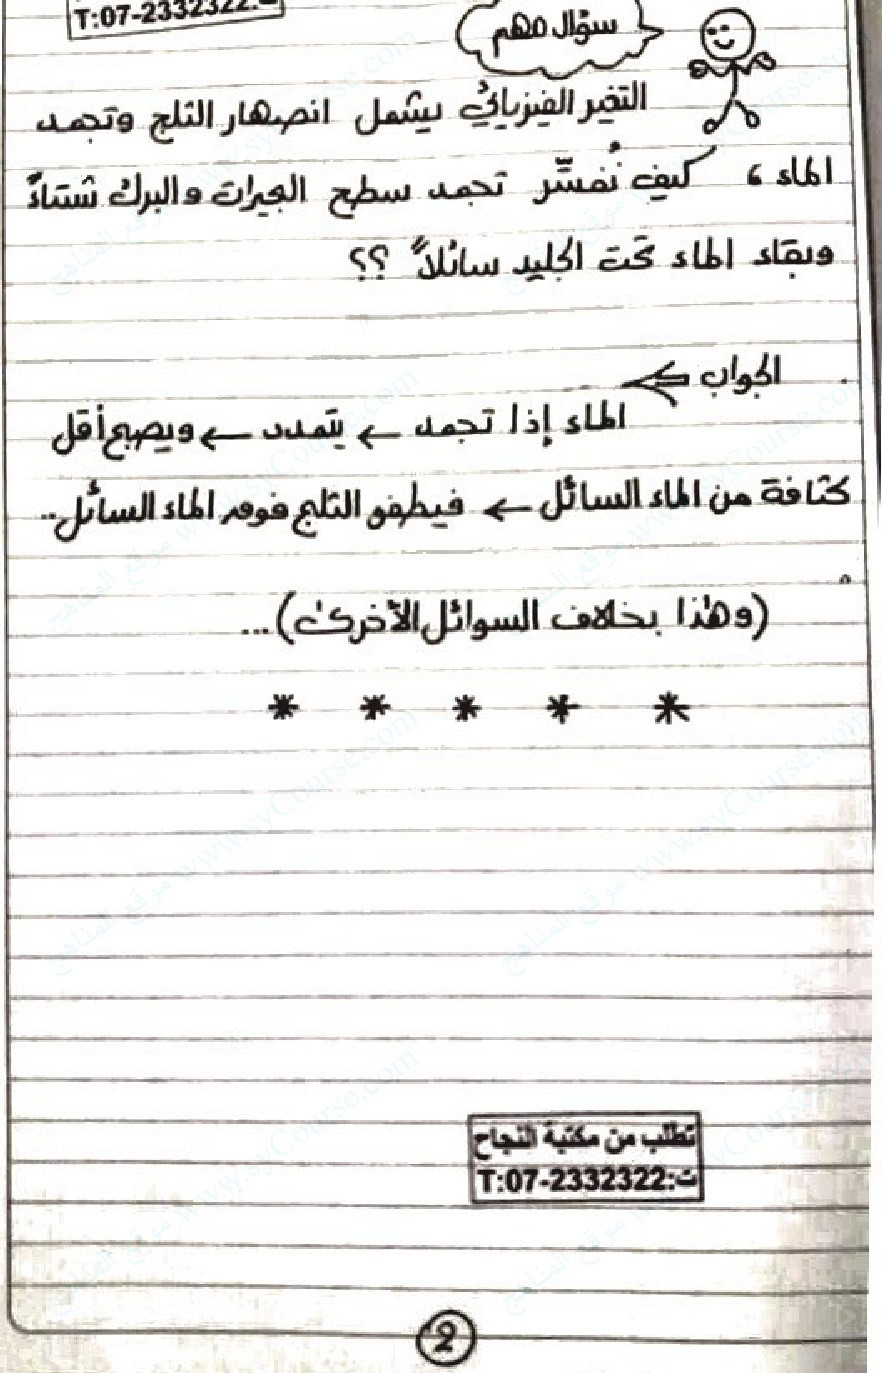 ت:T:07-2332322
سؤال مهم
التغير الفيزيائي يشمل انصهار الثلج وتجمد
الماء ، كيف نُفسِّر تجمد سطح البحيرات والبرك شتاءً
وبقاء الماء تحت الجليد سائلاً ؟؟
الجواب ⇐
الماء إذا تجمد ← يتمدد ← ويصبح أقل
كثافة من الماء السائل ← فيطفو الثلج فوق الماء السائل..
(وهذا بخلاف السوائل الأخرى)...
* * * * *
تطلب من مكتبة النجاح
ت:T:07-2332322
2
موقع المناهج www.syCourse.com